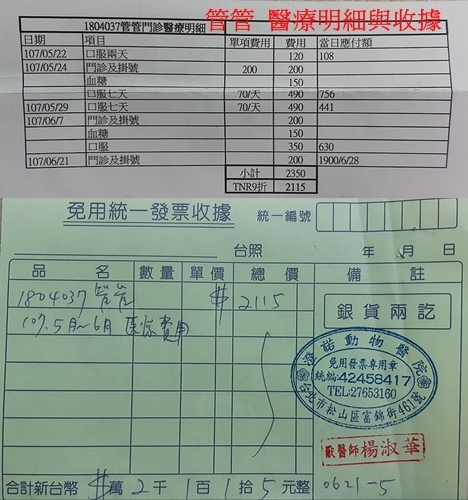 管管 醫療明細與收據
1804037管管門診醫療明細
日期 項目 單項費用 費用 當日應付額
107/05/22 口服兩天 120 108
107/05/24 門診及掛號 200 200
血糖 150
口服七天 70/天 490 756
107/05/29 口服七天 70/天 490 441
107/06/7 門診及掛號 200
血糖 150
口服 350 630
107/06/21 門診及掛號 200 1900/6/28
小計 2350
TNR9折 2115
免用統一發票收據 統一編號
台照 年 月 日
品名 數量 單價 總價 備註
1804037 管管 $2115
107.5月~6月 医療費用
銀貨兩訖
澄諾動物醫院
免用發票專用章
統編:42458417
TEL:27653160
台北市松山區富錦街461號
獸醫師楊淑華
合計新台幣 $ 萬 2 千 1 百 1 拾 5 元整 0621-5